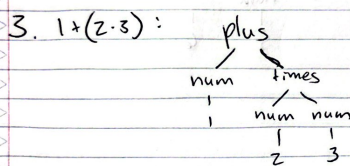 3. 1+(2·3) :
plus
num times
1 num num
2 3